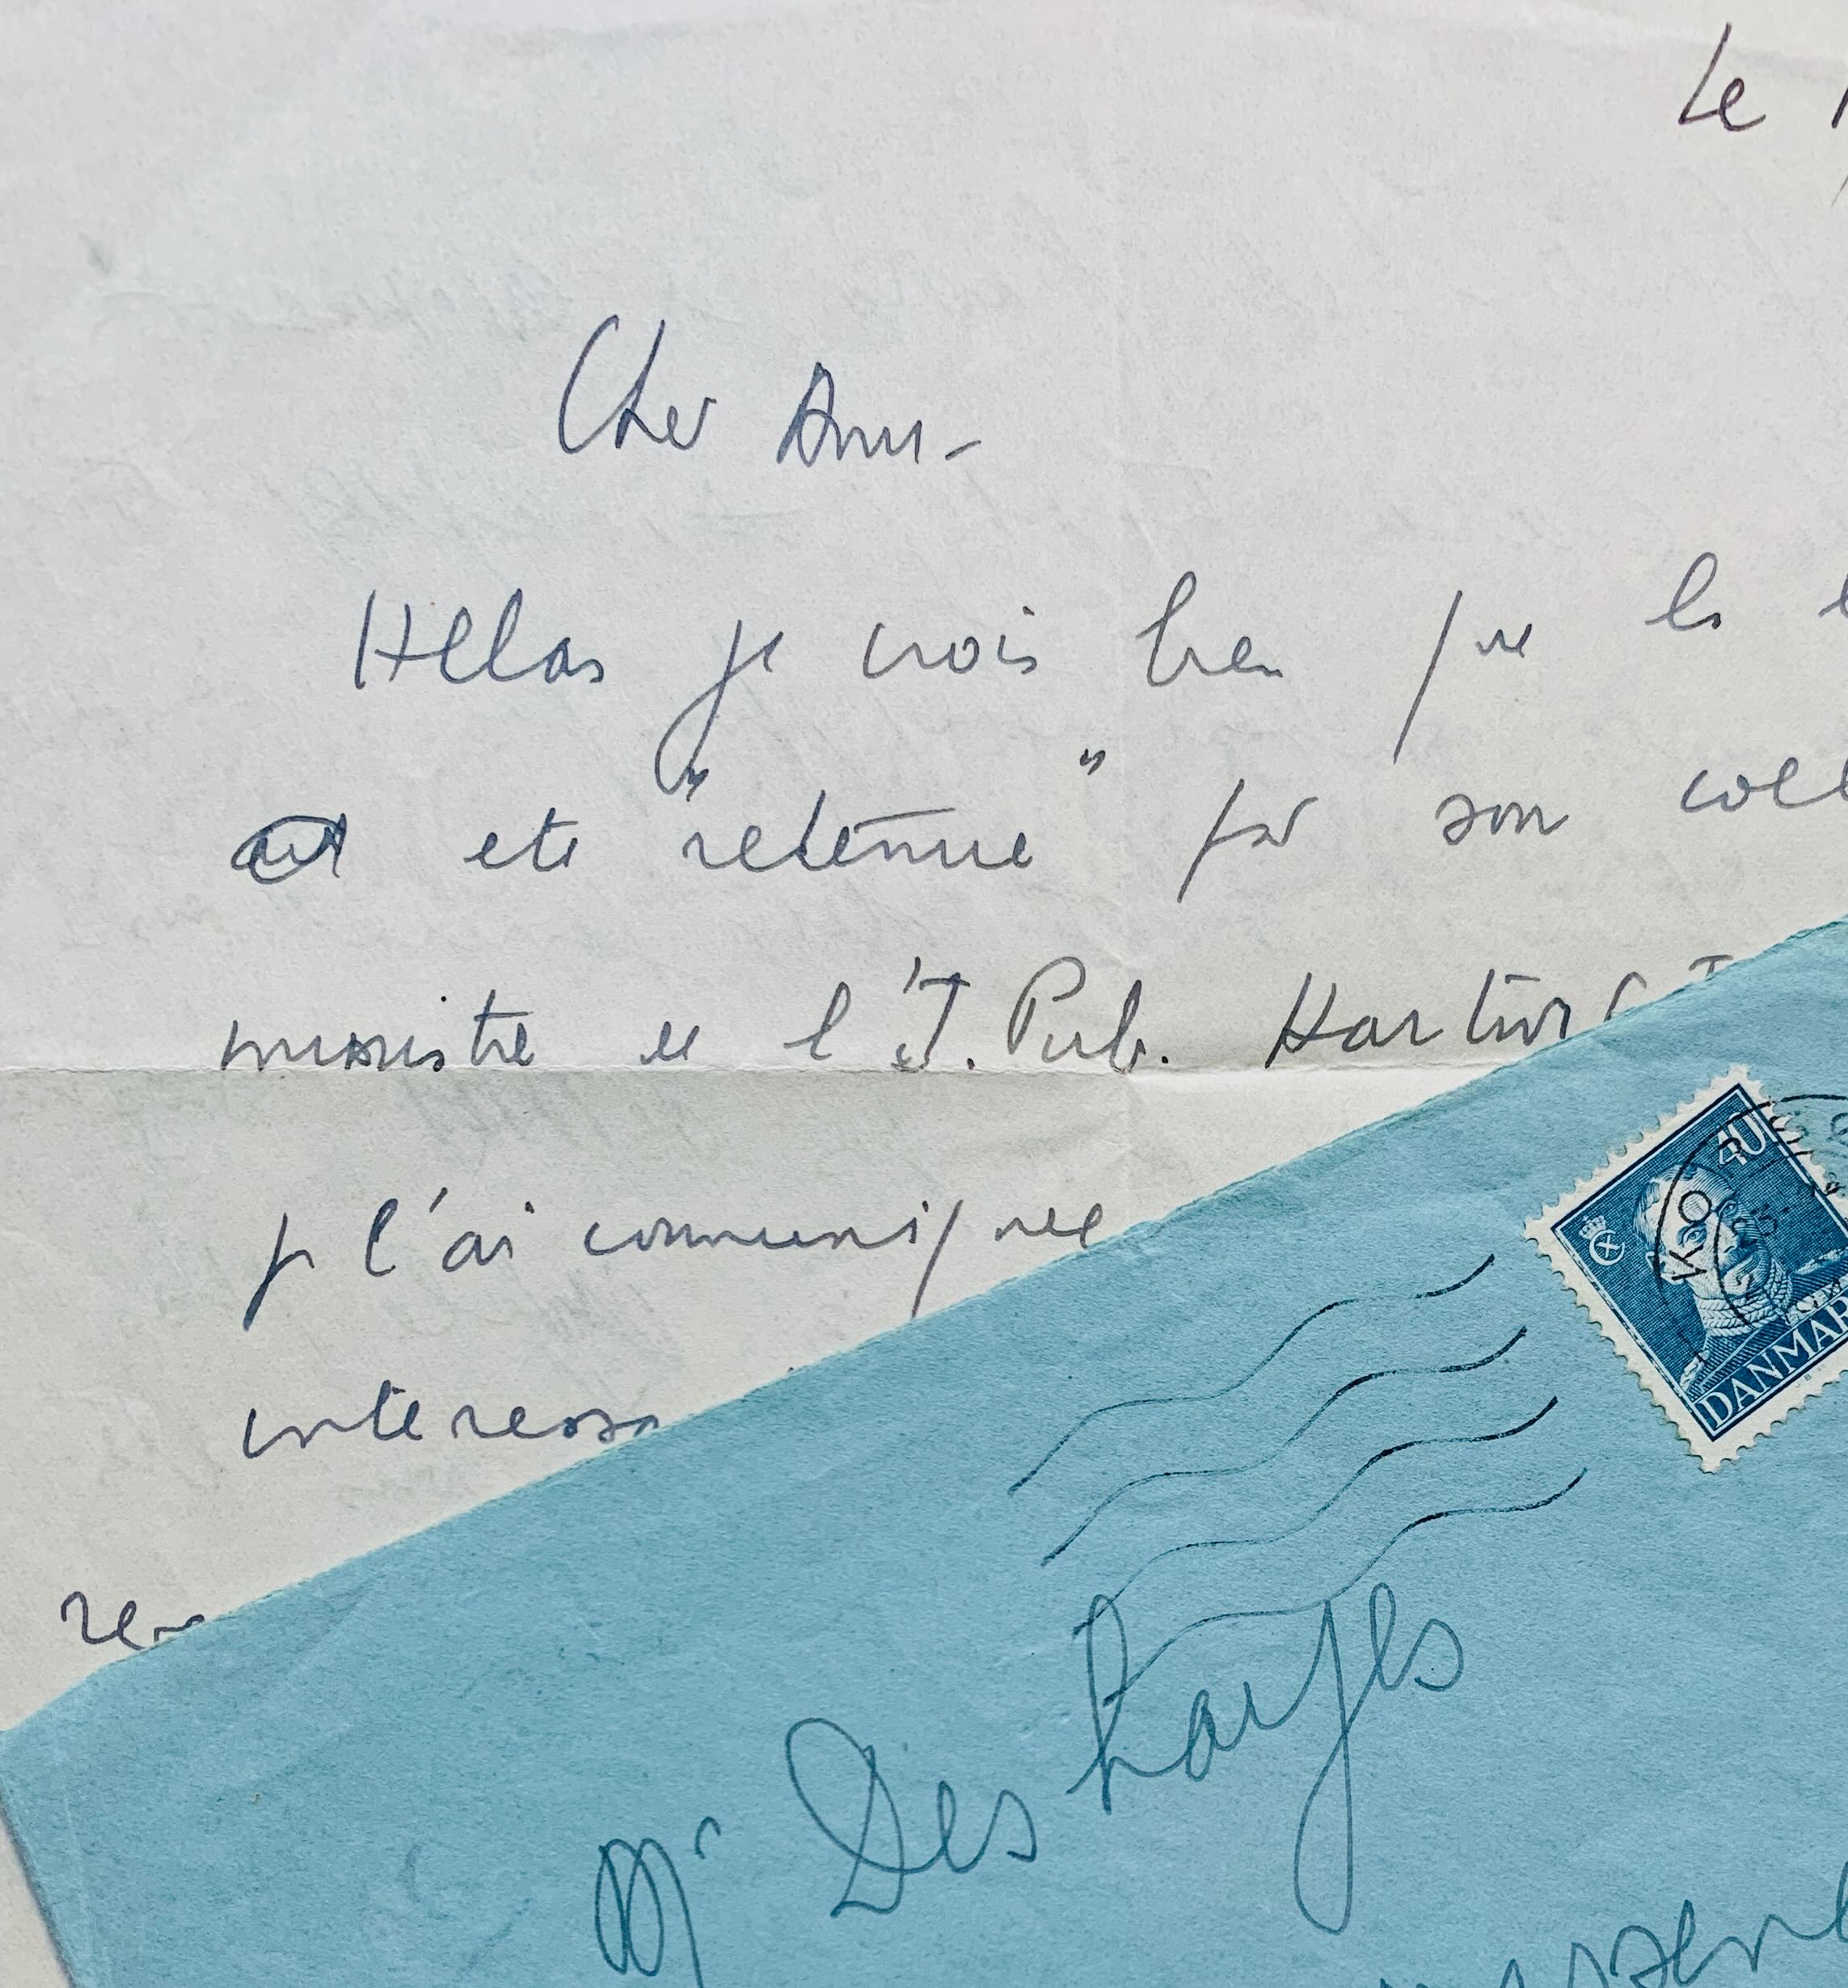 Le
Cher Ami -
Helas je crois bien que la
ait ete "retenue" par son
ministre de l'I. Pub. Hartvi
je l'ai communiquee
interess
40
KØ
DANMAR
Mr Des hayes